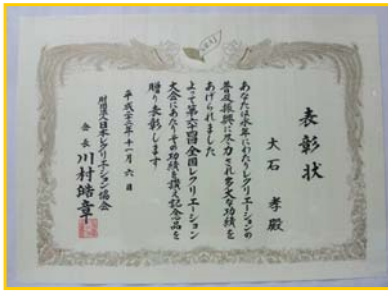 表彰状
大石 孝殿
あなたは永年にわたりレクリエーションの
普及振興に尽力され多大な功績を
あげられました
よって第六十四回全国レクリエーション
大会にあたりその功績を讃え記念品を
贈り表彰します
平成二十二年十一月六日
財団法人日本レクリエーション協会
会長 川村皓章